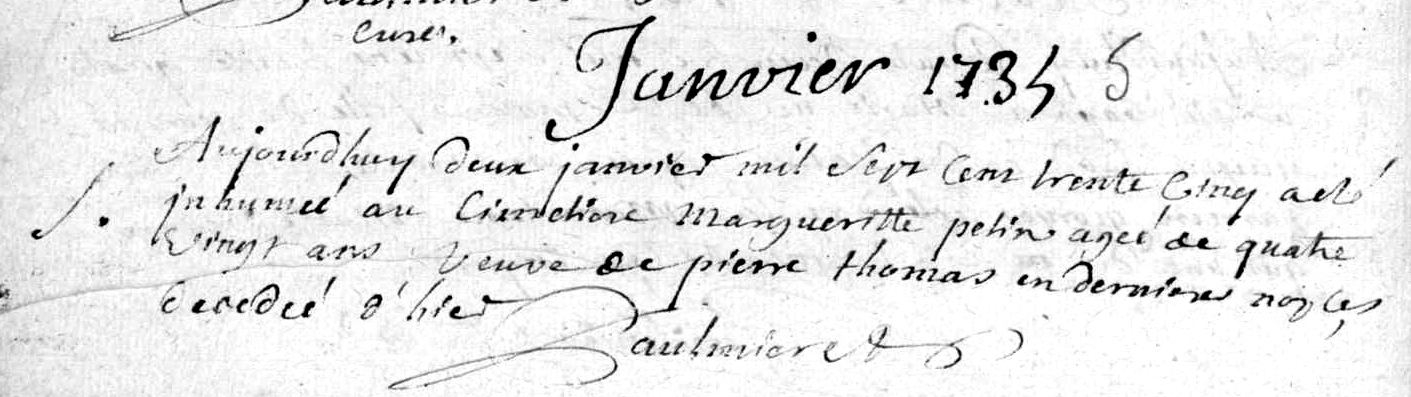 curé.
Janvier 1735 5
Aujourdhuy deux janvier mil sept cent trente cinq a eté
S. inhumeé au Cimetiere Margueritte petin ageé de quatre
vingt ans veuve de pierre thomas en dernieres nopces
decedeé d'hier
Saulnier